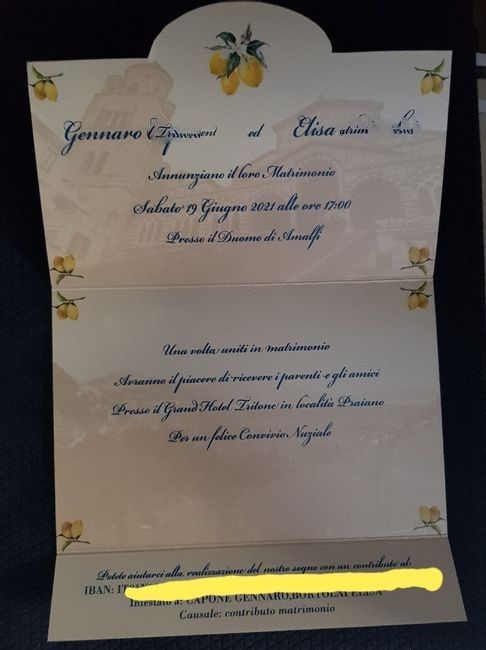 Gennaro ed Elisa
Annunziano il loro Matrimonio
Sabato 19 Giugno 2021 alle ore 17:00
Presso il Duomo di Amalfi
Una volta uniti in matrimonio
Avranno il piacere di ricevere i parenti e gli amici
Presso il Grand Hotel Tritone in località Praiano
Per un felice Convivio Nuziale
Potete aiutarci alla realizzazione del nostro sogno con un contributo al:
IBAN:
Intestato a: CAPONE GENNARO,BORTOLAI ELISA
Causale: contributo matrimonio